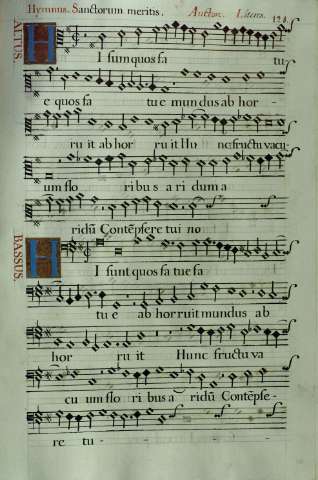 Hymnus. Sanctorum meritis. Auctor. Litera. 128.
ALTUS.
H I sum quos fa tu
e quos fa tu e mun dus ab hor
ru it ab hor ru it Hu nc fructu vacu
um flo ri bus a ri dum a
ridū Contēpsere tui no
BASSUS.
H I sunt quos fa tue fa
tu e ab hor ruit mundus ab
hor ru it Hunc fructu va
cu um flo ri bus a ridū Contēpse-
re tu-